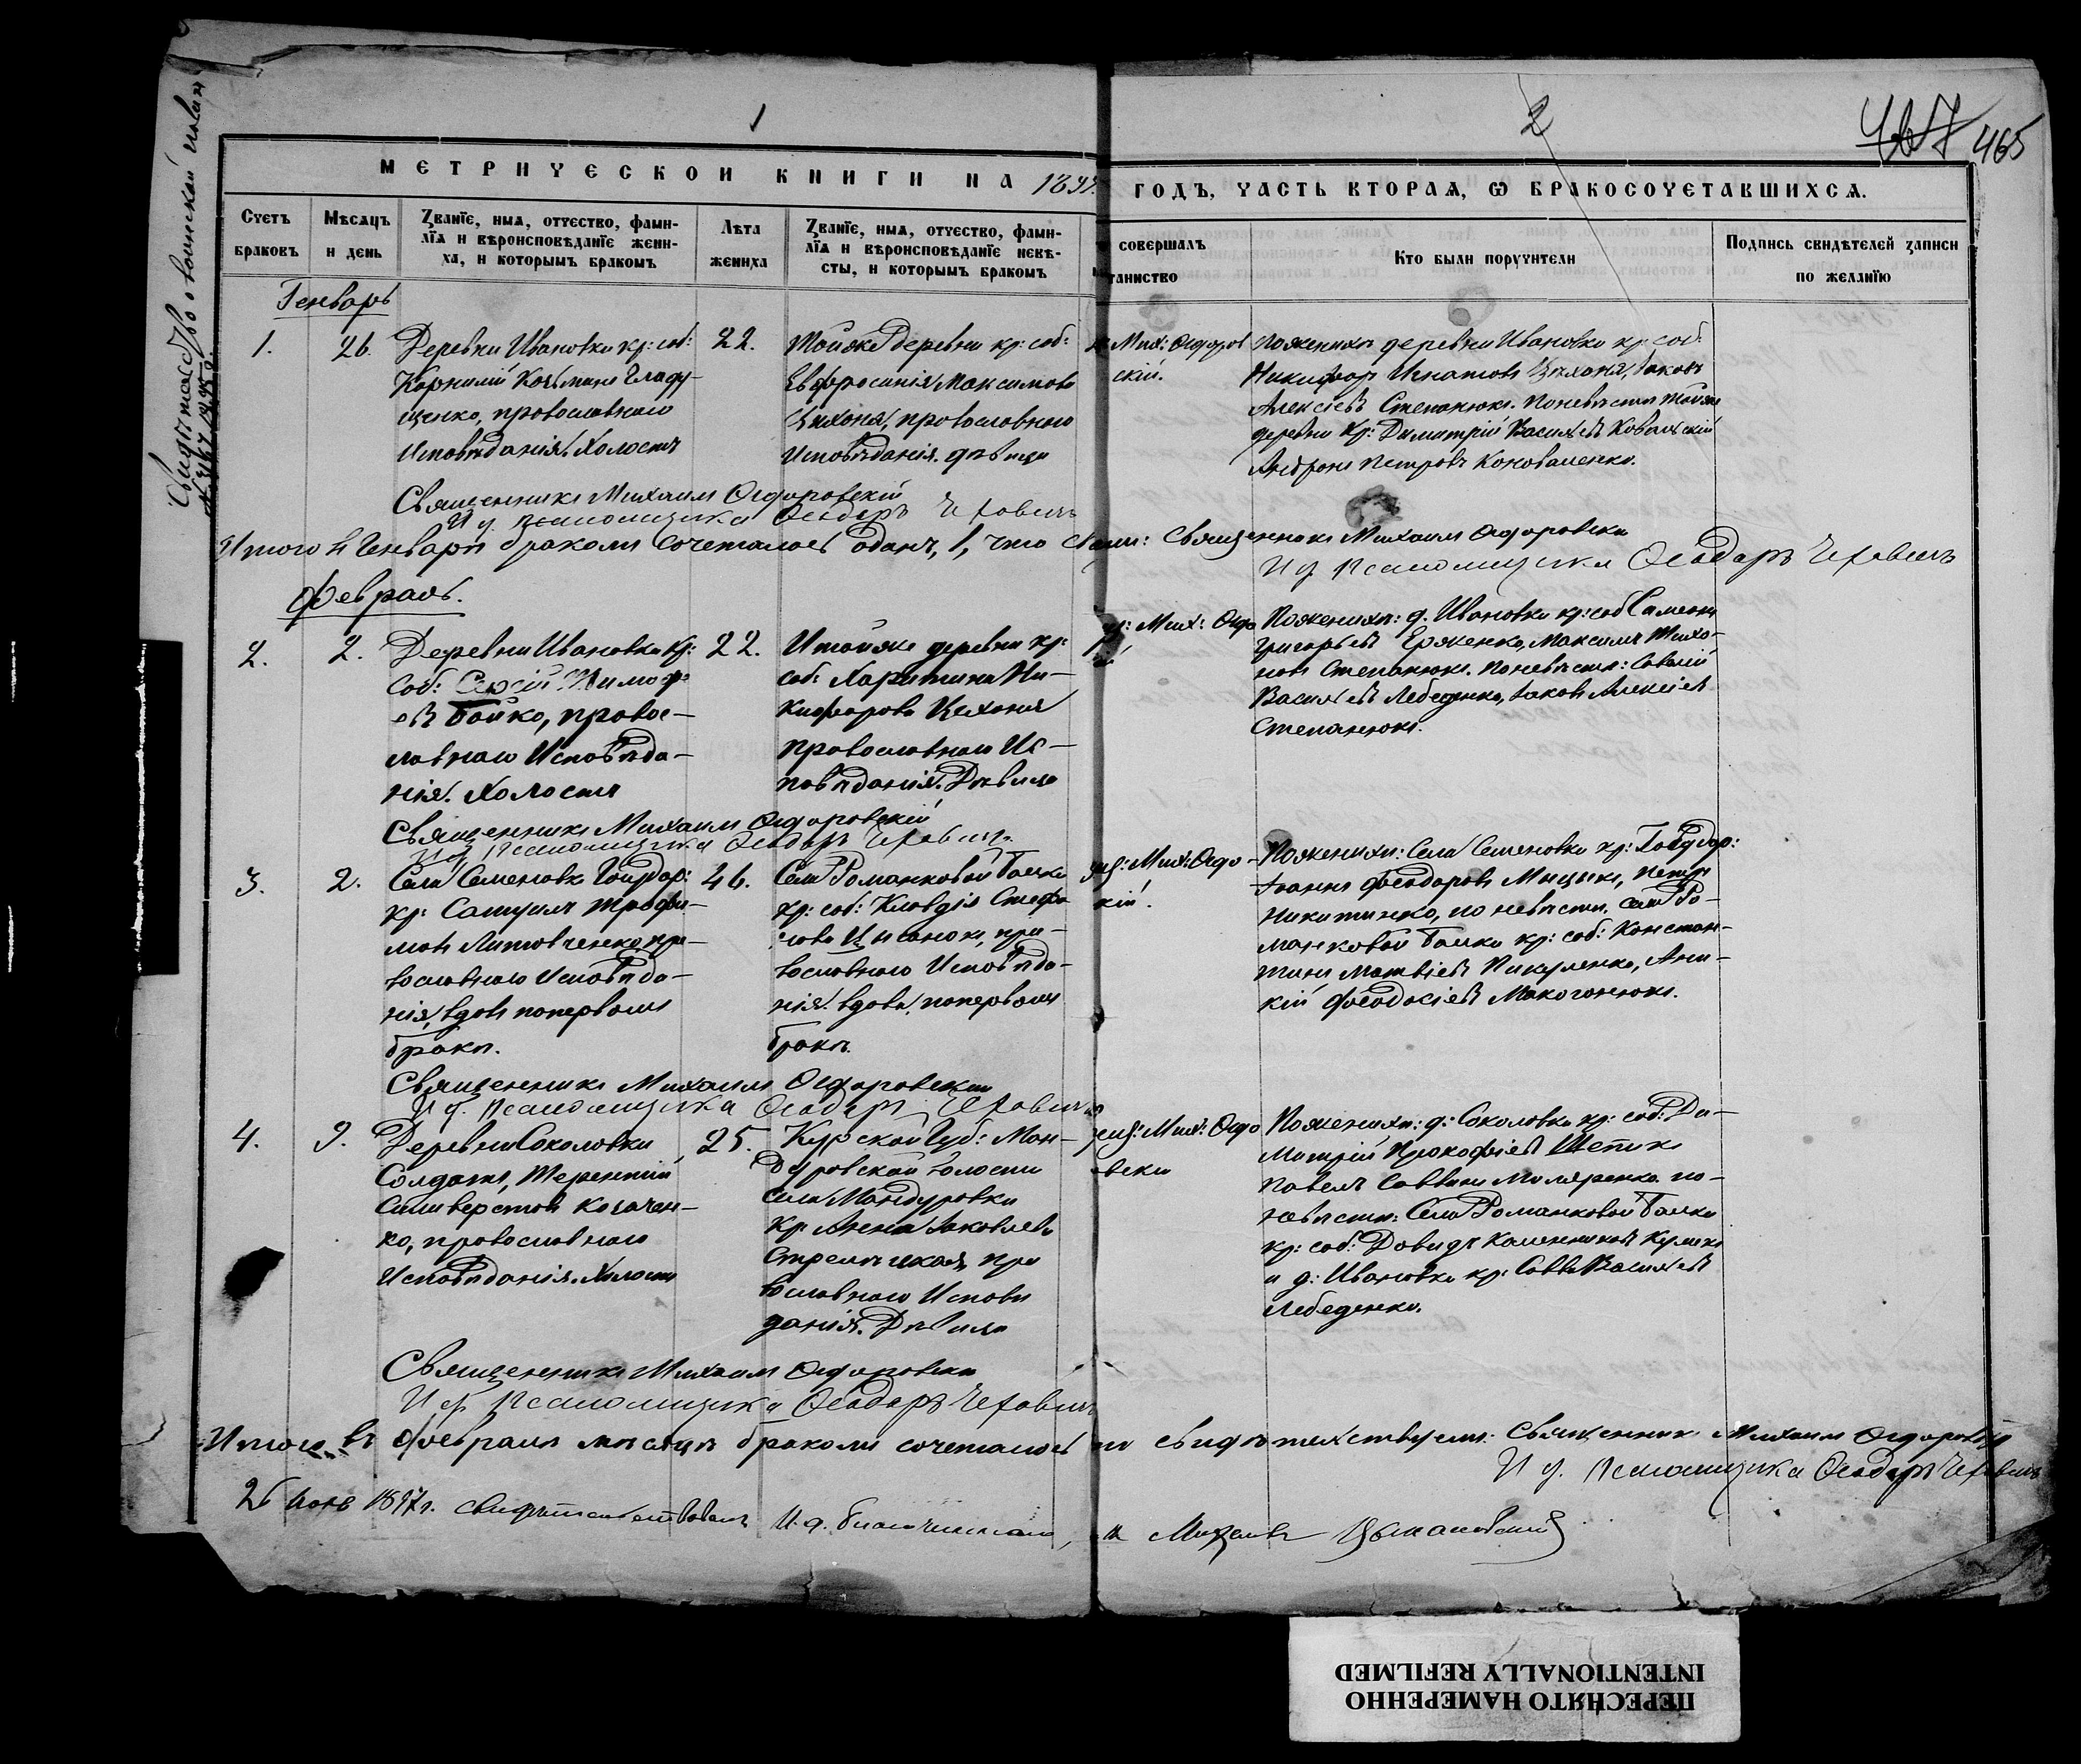 1
2
465
МЕТРИЧЕСКОЙ КНИГИ НА 1897
ГОДЪ, ЧАСТЬ ВТОРАѦ, Ѡ БРАКОСОЧЕТАВШИХСѦ.
Счетъ браковъ
Мѣсѧцъ и день
Званїе, имѧ, отчество, фами-
лїѧ и вѣроисповѣданїе жени-
ха, и которымъ бракомъ
Лѣта жениха
Званїе, имѧ, отчество, фами-
лїѧ и вѣроисповѣданїе невѣ-
сты, и которымъ бракомъ
совершалъ
таинство
Кто были поручители
Подпись свидѣтелей записи
по желанїю
Генварь
1.
26.
Деревни Ивановки кр: соб:
Корнилій Козьминъ Гладу-
щенко, православнаго
Исповѣданія, Холостъ
22.
Тойже деревни кр: соб:
Евфросинія Максимова
Цихоня, православнаго
Исповѣданія. дѣвица
Мих: Сидоров
скій.
По женихѣ деревни Ивановки кр: соб:
Никифоръ Игнатовъ Цихоня, Іаковъ
Алексіевъ Степанюкъ. По невѣстѣ тойже
деревни кр: Димитрій Васильевъ Ковальскій
Андронъ Петровъ Коноваленко.
Священникъ Михаилъ Сидоровскій
И д. псаломщика Ѳеодоръ Чеховичъ
Итого въ Генварѣ бракомъ сочеталось одинъ, 1, что
Священникъ Михаилъ Сидоровскій
И д. псаломщика Ѳеодоръ Чеховичъ
Февраль.
2.
2.
Деревни Ивановки кр:
соб:
Бойко, правос-
лавнаго Исповѣда-
нія. Холостъ
22.
И тойже деревни кр:
соб: Харитина Ни-
кифорова Цехоня
православнаго Ис-
повѣданія. Дѣвица
Мих: Сидо
По женихѣ: д. Ивановки кр: соб Симеонъ
Григорьевъ Ерженко, Максимъ Тихо-
новъ Степанюкъ. По невѣстѣ: Савелій
Васильевъ Лебеденко, Іаковъ Алексіевъ
Степанюкъ.
Священникъ Михаилъ Сидоровскій
И д. псаломщика Ѳеодоръ Чеховичъ
3.
2.
Села Семеновки Государ:
кр: Самуилъ Трофи-
мовъ Литовченко, пра-
вославнаго Исповѣда-
нія, вдовъ по первомъ
бракѣ.
46.
Села Романковой Балки
кр: соб: Клавдія Стефа
нова Цыганокъ, пра-
вославнаго Исповѣда-
нія. вдова, по первомъ
бракѣ.
Мих: Сидо-
кій.
По женихѣ: Села Семеновки кр: Государ:
Іоаннъ Феодоровъ Мицыкъ, Петръ
Никитинко, по невѣстѣ. села Ро-
манковой Балки кр: соб: Констан-
тинъ Матвіевъ Пикуленко, Ани-
кій Феодосіевъ Макогонюкъ.
Священникъ Михаилъ Сидоровскій
И д. псаломщика Ѳеодоръ Чеховичъ
4.
9.
Деревни Соколовки
Солдатъ, Терентій
Силиверстовъ Козачен-
ко, православнаго
Исповѣданія. Холостъ
25.
Курской Губ: Ман-
дуровской волости
села Мандуровки
кр: Анна Іаковлева
Стрелецкая, пра
вославнаго Исповѣ
данія. Дѣвица
Мих: Сидо
вски
По женихѣ: д: Соколовки кр: соб: Ди-
митрій Прокофіевъ Шепикъ
Павелъ Саввинъ Моляренко. по-
невѣстѣ: Села Романковой Балки
кр: соб: Давидъ Каленниковъ Куликъ
и д: Ивановки кр: Савва Васильевъ
Лебеденко.
Священникъ Михаилъ Сидоровскій
И д. псаломщика Ѳеодоръ Чеховичъ
Итого въ Февралѣ мѣсяцѣ бракомъ сочеталось
свидѣтельствуемъ: Священникъ Михаилъ Сидоровскій
И д. псаломщика Ѳеодоръ Чеховичъ
1897 г. свидѣтельствовалъ И. д. благочиннаго,
ПЕРЕСНЯТО НАМЕРЕННО
INTENTIONALLY REFILMED